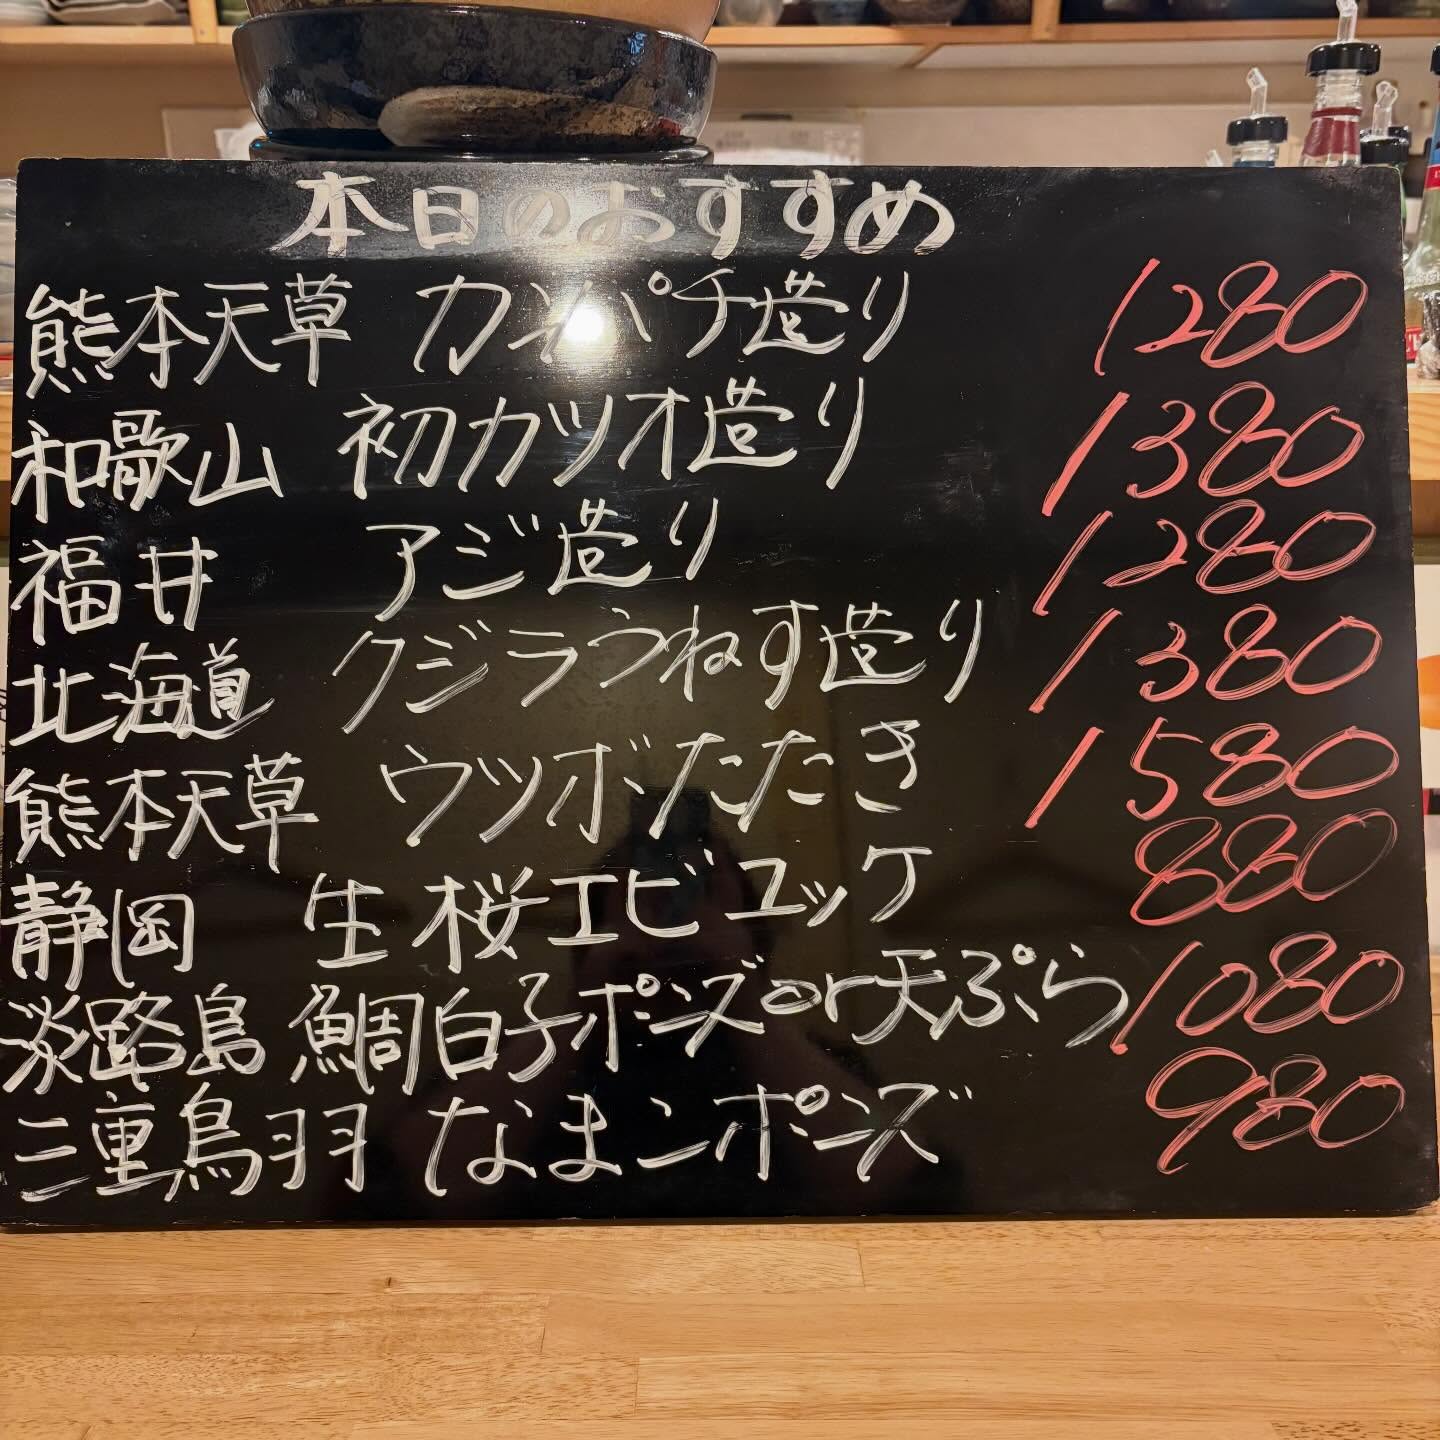 本日のおすすめ
熊本天草 カンパチ造り 1280
和歌山 初カツオ造り 1380
福井 アジ造り 1280
北海道 クジラうねす造り 1380
熊本天草 ウツボたたき 1580
静岡 生桜エビユッケ 880
淡路島 鯛白子ポンズor天ぷら 1080
三重鳥羽 なまこポンズ 980